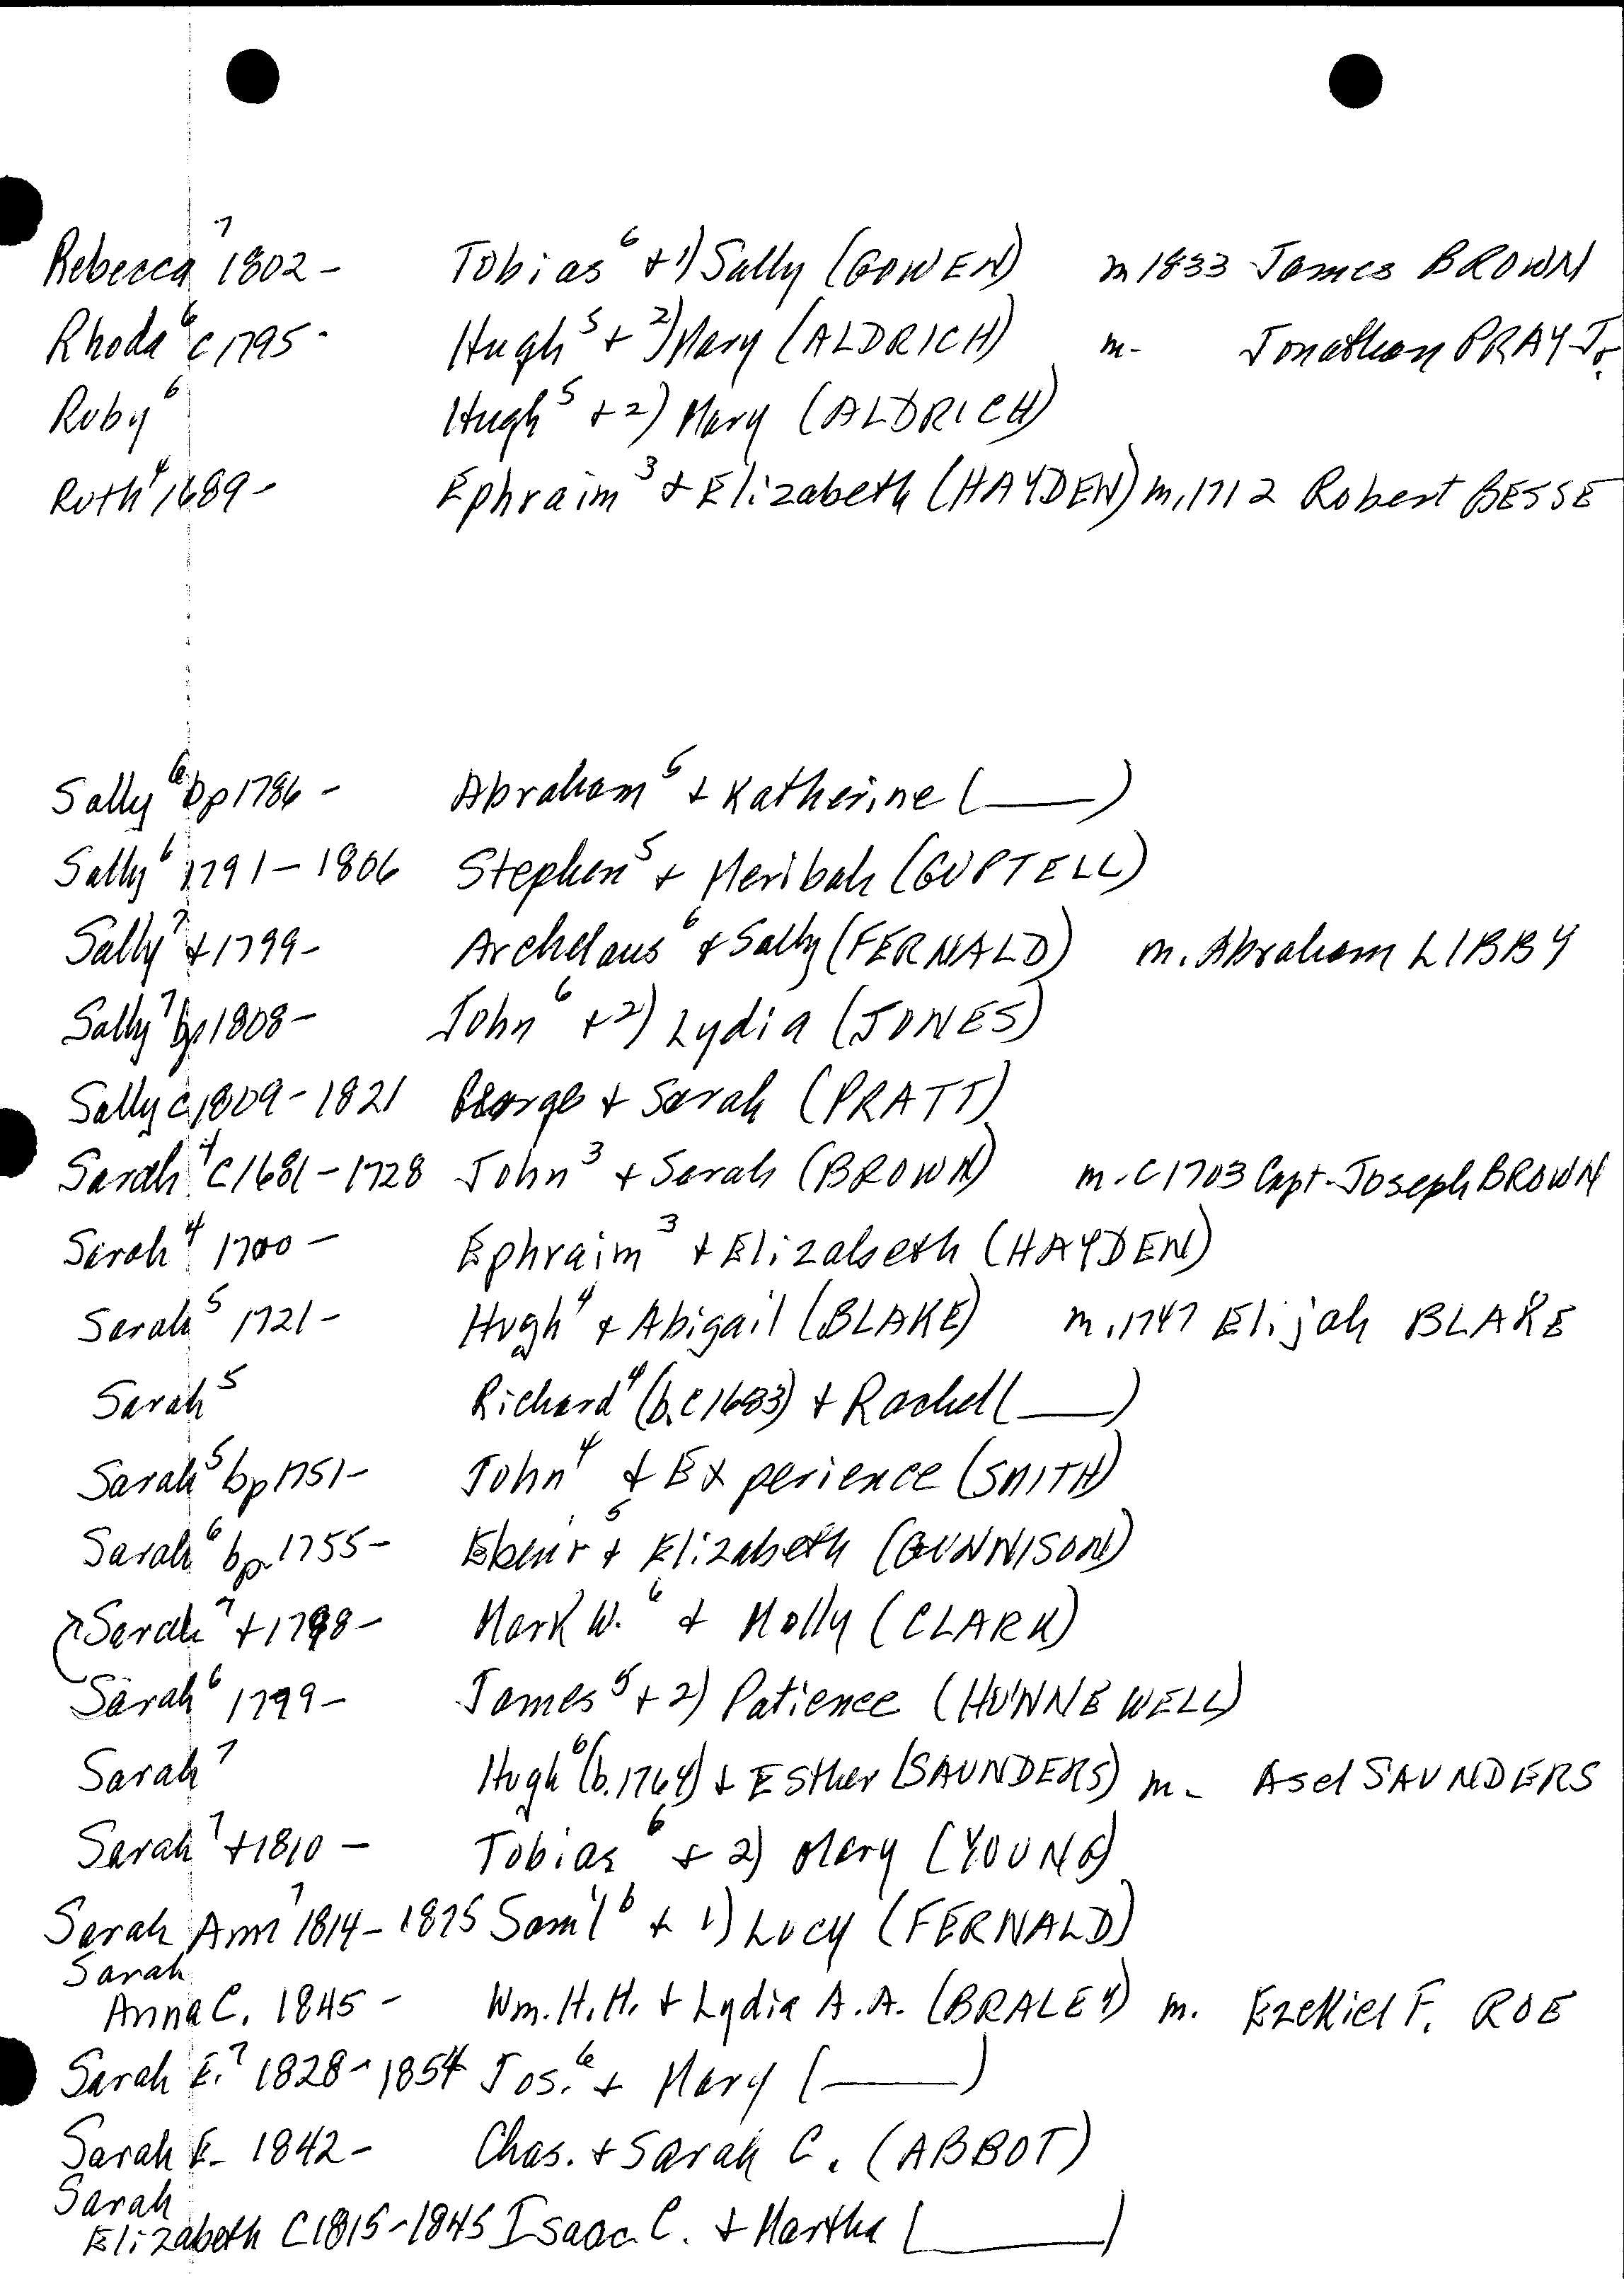 Rebecca⁷ 1802 - Tobias⁶ + 1) Sally (GOWEN) m 1833 James BROWN
Rhoda⁶ c 1795 - Hugh⁵ + 2) Mary (ALDRICH) m- Jonathan PRAY Jr.
Ruby⁶ Hugh⁵ + 2) Mary (ALDRICH)
Ruth⁴ 1689 - Ephraim³ + Elizabeth (HAYDEN) m. 1712 Robert BESSE
Sally⁶ bp 1786 - Abraham⁵ + Katherine (____)
Sally⁶ 1791 - 1806 Stephen⁵ + Meribah (GUPTELL)
Sally⁷ + 1799 - Archelaus⁶ + Sally (FERNALD) m. Abraham LIBBY
Sally⁷ bp 1808 - John⁶ + 2) Lydia (JONES)
Sally c 1809 - 1821 George + Sarah (PRATT)
Sarah⁴ c 1681 - 1728 John³ + Sarah (BROWN) m. c 1703 Capt. Joseph BROWN
Sarah⁴ 1700 - Ephraim³ + Elizabeth (HAYDEN)
Sarah⁵ 1721 - Hugh⁴ + Abigail (BLAKE) m. 1747 Elijah BLAKE
Sarah⁵ Richard⁴ (b. c 1683) + Rachel (____)
Sarah⁵ bp 1751 - John⁴ + Experience (SMITH)
Sarah⁶ bp. 1755 - Eben'r⁵ + Elizabeth (GUNNISON)
Sarah⁷ + 1798 - Mark W.⁶ + Molly (CLARK)
Sarah⁶ 1799 - James⁵ + 2) Patience (HUNNEWELL)
Sarah⁷ Hugh⁶ (b. 1764) + Esther (SAUNDERS) m- Asel SAUNDERS
Sarah⁷ + 1810 - Tobias⁶ + 2) Mary (YOUNG)
Sarah Ann⁷ 1814 - 1875 Sam'l⁶ + 1) Lucy (FERNALD)
Sarah
Anna C. 1845 - Wm. H. H. + Lydia A. A. (BRALEY) m. Ezekiel F. ROE
Sarah E.⁷ 1828 - 1854 Jos.⁶ + Mary (____)
Sarah E- 1842 - Chas. + Sarah C. (ABBOT)
Sarah
Elizabeth C1815 - 1845 Isaac C. + Martha (____)